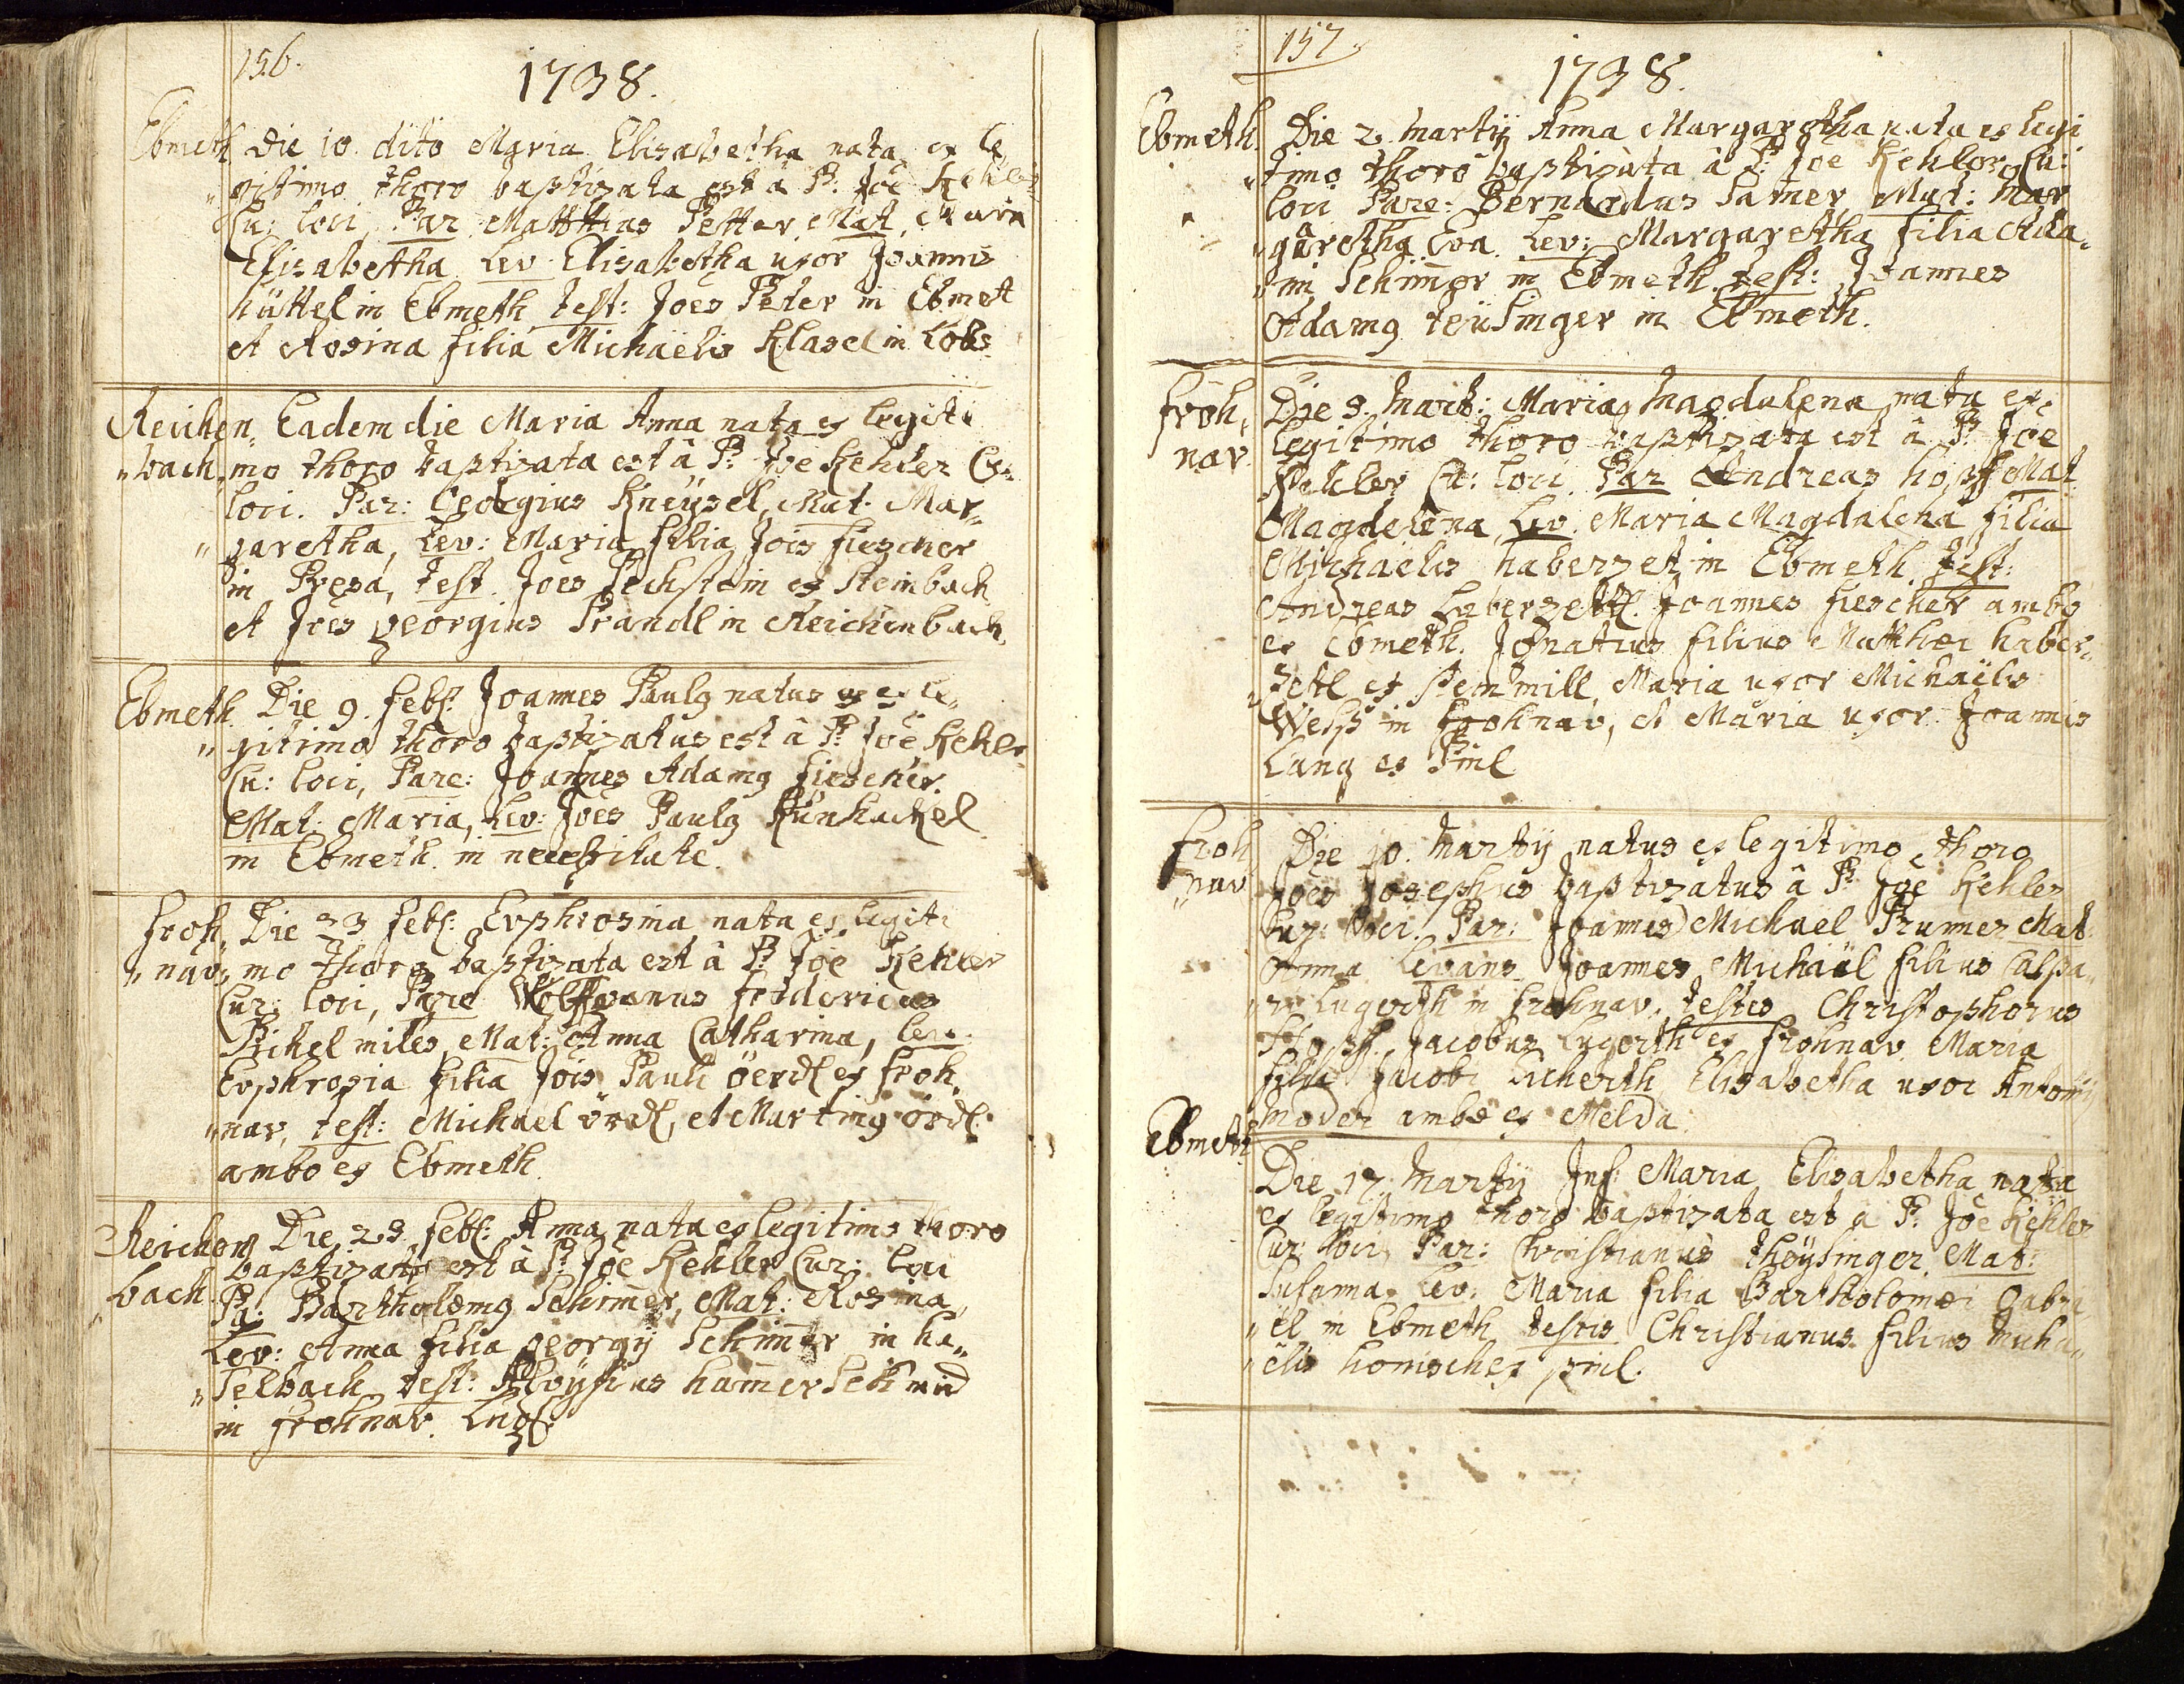 156.
1738.
Ebmeth Die 10. dito Maria Elisabetha nata ex le„
„gitimo thoro baptizata est â P: Joe Kehler
Cu: loci, Par Matthias Petter, Mat, Maria
Elisabetha Lev: Elisabetha uxor Joannis
hüttel in Ebmeth test: Joes Peter in Ebmet
et Rosina filia Michaelis Klasel in Lobs
Reichen„ Eadem die Maria Anna nata ex legiti
„bach, mo thoro baptizata est â P: Joe Kehler Cu:
loci. Par: Georgius Kneÿsel, Mat: Mar„
„garetha, Lev: Maria filia Jois fiescher
in Presa, test. Joes Pechstein ex Steinbach
et Joes georgius Prandl in Reichenbach.
Ebmeth. Die 9. feb: Joannes Paulg natus ex le„
„gitimo thoro baptizatus est â P: Joe Kehler
Cu: loci, Pare: Joannes Adamg fiescher.
Mat: Maria, Lev: Joes Paulg Künhackel
in Ebmeth. in necessitate.
froh„ Die 23 feb: Evphrosina nata ex legiti
„nav„ mo thoro baptizata est â P: Joe Kehler
Cur: loci, Pare Wolffganus fridericus
Pichel miles, Mat: Anna Catharina, lev:
Evphrosia filia Jois Pauli öerdl ex froh„
„nav, test: Michael ördl, et Marting ördl
ambo ex Ebmeth.
Reichen Die 23 feb: Anna nata ex legitimo thoro
„bach baptizata est â P: Joe Kehler Cur: loci
Pa: Bartholomg Schim̄er, Mat: Rosina„
Lev: Anna filia georgij Schim̄er in ha„
„selbach test: Aloÿsius ham̄erschmid
in frohnav.
157
1738.
Ebmeth. Die 2. Martij Anna Margaretha nata ex legi
„timo thoro baptizata â P: Joe Kehler Cu:
loci Pare: Bernardus Samer, Mat: Mar
„garetha Eva. Lev: Margaretha filia Ada„
„mi Schim̄er in Ebmeth. test: Joannes
Adamg teüsinger in Ebmeth.
froh„ Die 9. Mart: Maria Magdalena nata ex
nav. legitimo thoro baptizata est â P: Joe
Kehler Cu: loci. Par Andreas hopff Mat
Magdelena, Lev. Maria Magdalena filia
Michaelis haberzet in Ebmeth test:
Andreas haberzettl Joannes fiescher ambo
ex Ebmeth. Ignatius filius Matthæi haber„
„zetl ex steinmill, Maria uxor Michaëlis
Weiss in frohnav, et Maria uxor Joannis
Lang ex Pinl
froh Die 10. Martij natus ex legitimo thoro
„nav Joes Josephus baptizatus â P: Joe Kehler
Cur: loci. Par: Joannes Michael Prunner Mat:
Anna Levans Joannes Michaël filius Caspa„
„ri Lugerth in frohnav. testes Christophorus
Hopff, Jacobus Lugerth ex frohnav. Maria
filia Jacobi Elisabetha uxor Antonij
Moder ambo ex Melda.
Ebmeth
Die 17. Martij Inf: Maria Elisabetha nata
ex legitimo thoro baptizata est a P: Joe Kehler
Cur: loci, Par: Christianus theÿsinger, Mat:
Susanna. Lev: Maria filia Bartholomæi Gabri
„ël in Ebmeth testes Christianus filius Micha„
„ëlis honischer pinl.